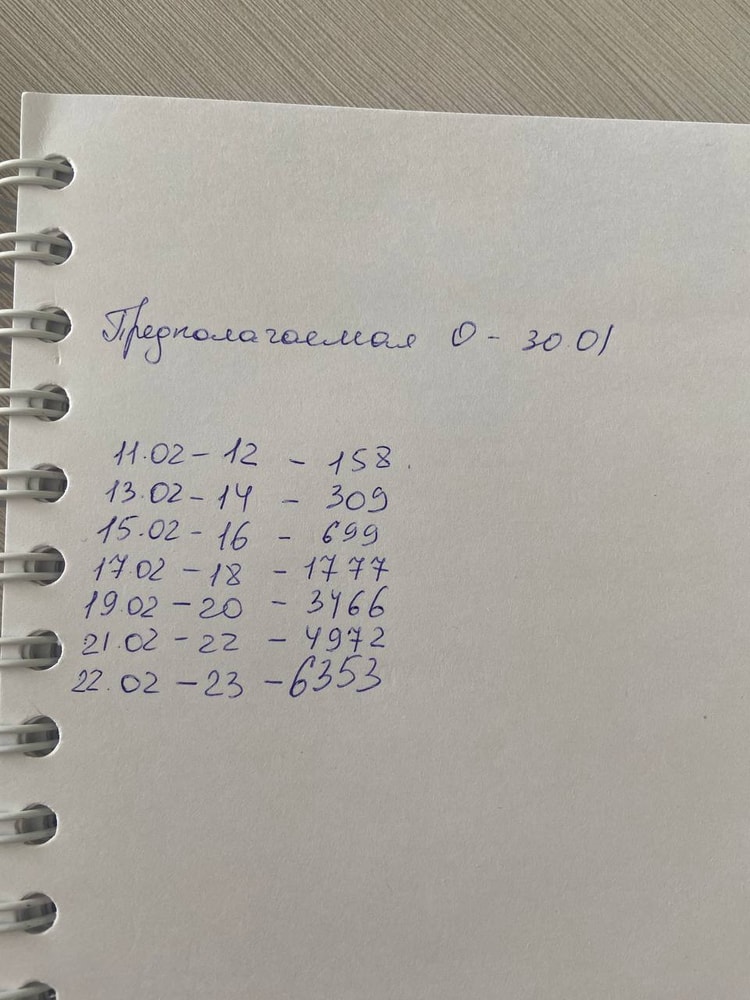 Предполагаемая О - 30.01
11.02 - 12 - 158.
13.02 - 14 - 309
15.02 - 16 - 699
17.02 - 18 - 1777
19.02 - 20 - 3466
21.02 - 22 - 4972
22.02 - 23 - 6353